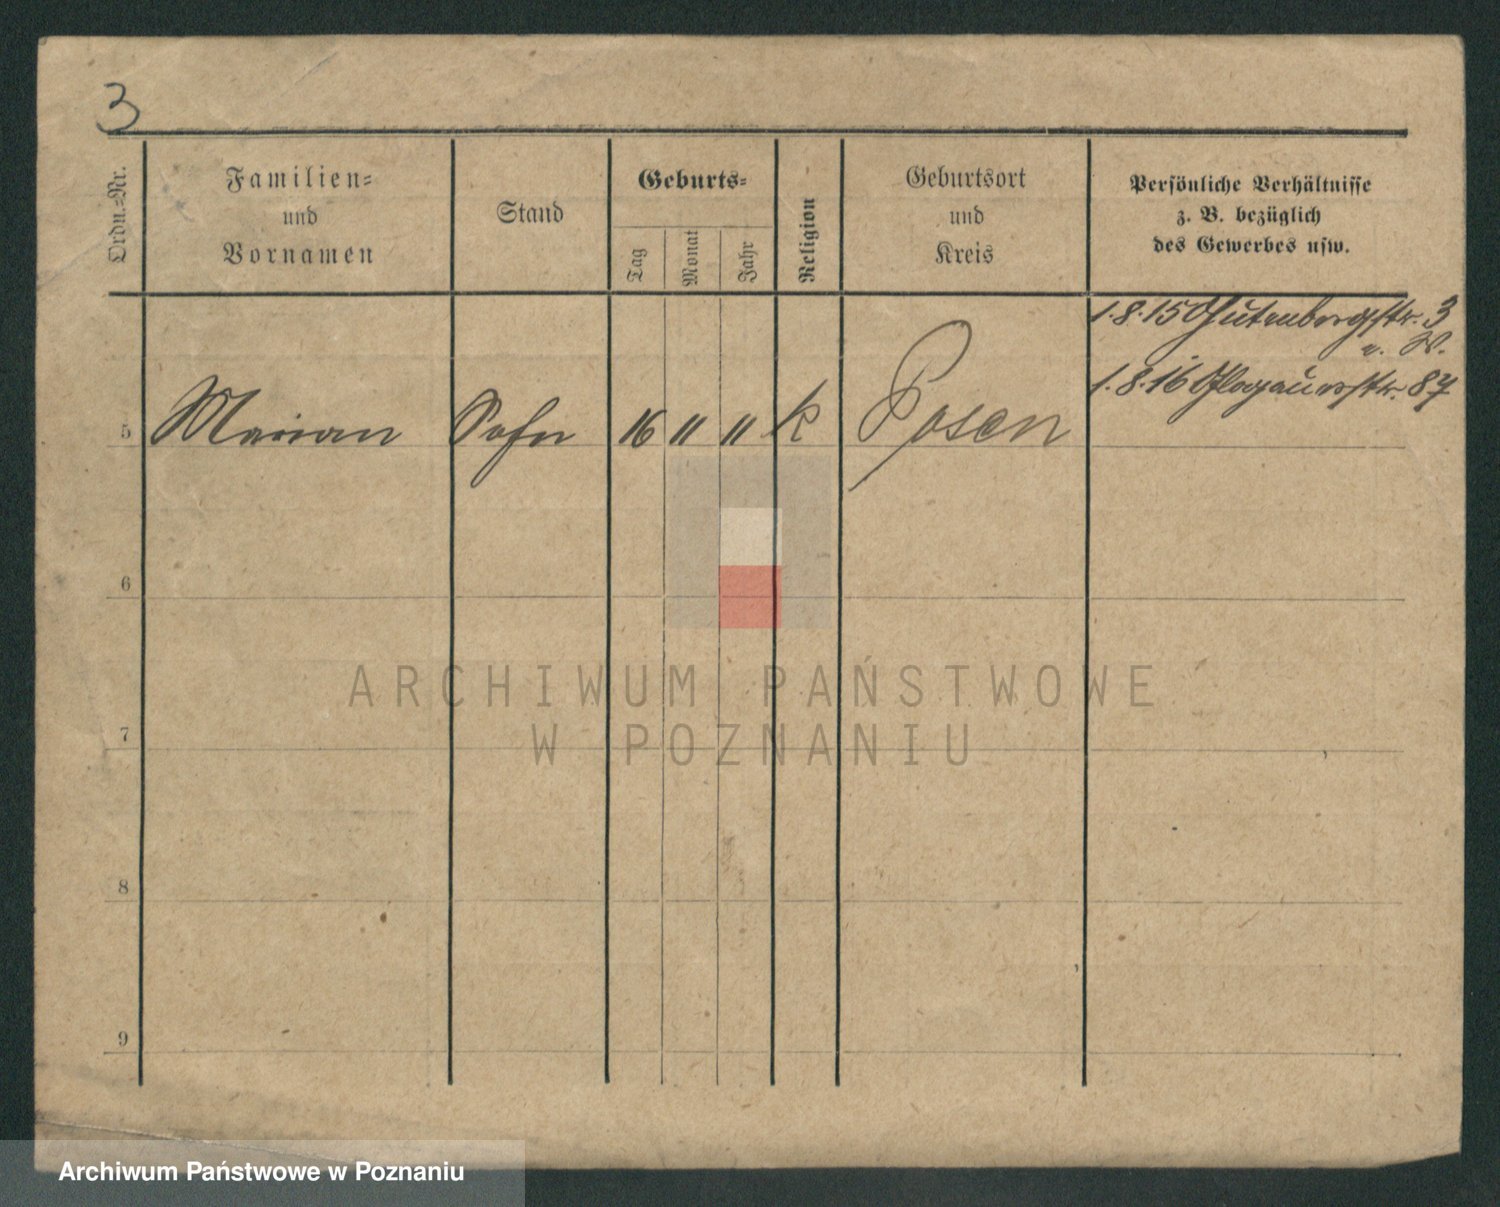 3
Ordn.-Nr.
Familien-
und
Vornamen
Stand
Geburts-
Tag
Monat
Jahr
Religion
Geburtsort
und
Kreis
Persönliche Verhältnisse
z. B. bezüglich
des Gewerbes usw.
1.8.15 Gutenbergstr. 3
1.8.16 Glogauerstr. 87
5 Marian Sohn 16 " " k Posen
6
ARCHIWUM PAŃSTWOWE
W POZNANIU
7
8
9
Archiwum Państwowe w Poznaniu